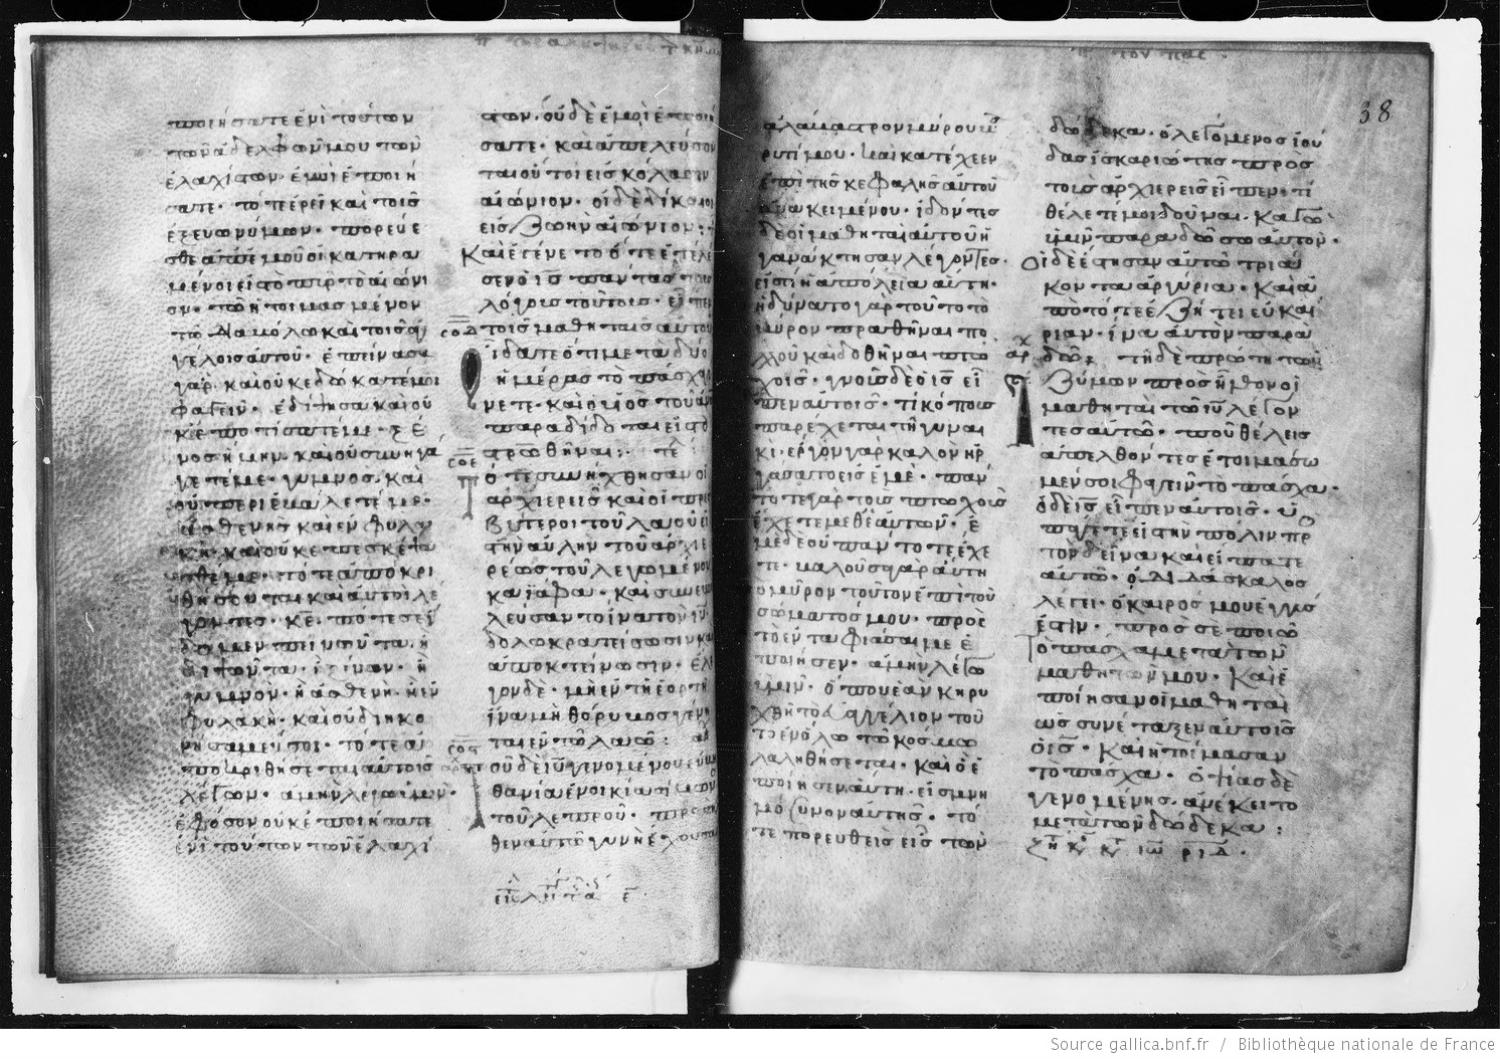 ποιήσατε ἑνὶ τούτων
τῶν ἀδελφῶν μου τῶν
ἐλαχίστων· ἐμοὶ ἐποιή
σατε· τότε ἐρεῖ καὶ τοῖς
ἐξ εὐωνύμων· πορεύε
σθε ἀπ' ἐμοῦ οἱ κατηρα
μένοι εἰς τὸ πῦρ τὸ αἰώνι
ον· τὸ ἡτοιμασμένον
τῶ διαβόλω καὶ τοῖς ἀγ
γέλοις αὐτοῦ· ἐπείνασα
γὰρ· καὶ οὐκ ἐδώκατέ μοι
φαγεῖν· ἐδίψησα καὶ οὐ
κ ἐποτίσατέ με· ξέ
νος ἤμην· καὶ οὐ συνηγά
γετέ με· γυμνὸς· καὶ
οὐ περιεβάλετέ με·
ἀσθενὴς καὶ ἐν φυλα
κῆ· καὶ οὐκ ἐπεσκέψα
σθέ με· τότε ἀποκρι
θήσονται καὶ αὐτοὶ λέ
γοντες· κε πότε σε εἴ
δομεν πεινῶντα· ἢ
διψῶντα· ἢ ξένον· ἢ
γυμνὸν· ἢ ἀσθενῆ· ἢ ἐν
φυλακῆ· καὶ οὐ διηκο
νήσαμέν σοι· τότε ἀ
ποκριθήσεται αὐτοῖς
λέγων· ἀμὴν λέγω ὑμῖν·
ἐφ' ὅσον οὐκ ἐποιήσατε
ἑνὶ τούτων τῶν ἐλαχί
στων· οὐδὲ ἐμοὶ ἐποιή
σατε· καὶ ἀπελεύσον
ται οὗτοι εἰς κόλασιν
αἰώνιον· οἱ δὲ δίκαιοι
εἰς ζωὴν αἰώνιον:
Καὶ ἐγένετο ὅτε ἐτέλε
σεν ὁ ις πάντας τοὺς
λόγους τούτους· εἶπεν
τοῖς μαθηταῖς αὐτοῦ
οἴδατε ὅτι μετὰ δύο
ἡμέρας τὸ πάσχα γί
νεται· καὶ ὁ υἱὸς τοῦ ἀν
παραδίδοται εἰς τὸ
στρωθῆναι: τέ
ότε συνήχθησαν οἱ
ἀρχιερεῖς καὶ οἱ πρεσ
βύτεροι τοῦ λαοῦ εἰ
τὴν αὐλὴν τοῦ ἀρχιε
ρέως τοῦ λεγομένου
καϊάφα· καὶ συνεβου
λεύσαντο ἵνα τὸν ιν
δόλω κρατήσωσιν καὶ
ἀποκτείνωσιν· ἔλε
γον δὲ· μὴ ἐν τῆ ἑορτῆ
ἵνα μὴ θόρυβος γένη
ται ἐν τῶ λαῶ:
οῦ δὲ ιυ γενομένου ἐν βη
θανία ἐν οἰκία σίμωνος
τοῦ λεπροῦ· προσῆλ
θεν αὐτῶ γυνὴ ἔχουσα
38
ἀλάβαστρον μύρου
ρυτίμου· καὶ κατέχεεν
ἐπὶ τῆς κεφαλῆς αὐτοῦ
ἀνακειμένου· ἰδόντες
δὲ οἱ μαθηταὶ αὐτοῦ ἠ
γανάκτησαν λέγοντες·
εἰς τί ἡ ἀπώλεια αὕτη·
ἠδύνατο γὰρ τοῦτο τὸ
μύρον πραθῆναι πο
λλοῦ καὶ δοθῆναι πτω
χοῖς· γνοὺς δὲ ὁ ις εἶ
πεν αὐτοῖς· τί κόπους
παρέχεται τῆ γυναι
κὶ· ἔργον γὰρ καλὸν ἠρ
γάσατο εἰς ἐμὲ· πάν
τοτε γὰρ τοὺς πτωχοὺς
ἔχετε μεθ' ἑαυτῶν· ἐ
μὲ δὲ οὐ πάντοτε ἔχε
τε· βαλοῦσα γὰρ αὕτη
τὸ μῦρον τοῦτον ἐπὶ τοῦ
σώματός μου· πρὸς
τὸ ἐνταφιάσαι με ἐ
ποίησεν· ἀμὴν λέγω
ὑμῖν· ὅπου ἐὰν κηρυ
χθῆ τὸ εὐαγγέλιον τοῦ
το ἐν ὅλω τῶ κόσμω
λαληθήσεται· καὶ ὃ ἐ
ποίησεν αὕτη· εἰς μνη
μόσυνον αὐτῆς· τό
τε πορευθεὶς εἷς τῶν
δώδεκα· ὁ λεγόμενος ἰού
δας ἰσκαριώτης πρὸς
τοὺς ἀρχιερεῖς εἶπεν· τί
θέλετέ μοι δοῦναι· καγὼ
ὑμῖν παραδώσω αὐτὸν·
Οἱ δὲ ἔστησαν αὐτῶ τριά
κοντα ἀργύρια· καὶ ἀ
πὸ τότε ἐζήτει εὐκαι
ρίαν· ἵνα αὐτὸν παρα
δῶ: τῆ δὲ πρώτη τῶν
ἀζύμων προσῆλθον οἱ
μαθηταὶ τῶ ιυ λέγον
τες αὐτῶ· ποῦ θέλεις
ἀπελθόντες ἑτοιμάσω
μέν σοι φαγεῖν τὸ πάσχα·
ὁ δὲ ις εἶπεν αὐτοῖς· ὑ
πάγετε εἰς τὴν πόλιν πρ
τὸν δεῖνα καὶ εἴπατε
αὐτῶ· ὁ διδάσκαλος
λέγει· ὁ καιρός μου ἐγγύς
ἐστιν· πρὸς σὲ ποιῶ
τὸ πάσχα μετὰ τῶν
μαθητῶν μου· Καὶ ἐ
ποίησαν οἱ μαθηταὶ
ὡς συνέταξεν αὐτοῖς
ὁ ις· καὶ ἡτοίμασαν
τὸ πάσχα· ὀψίας δὲ
γενομένης· ἀνέκειτο
μετὰ τῶν δώδεκα:
Source gallica.bnf.fr / Bibliothèque nationale de France